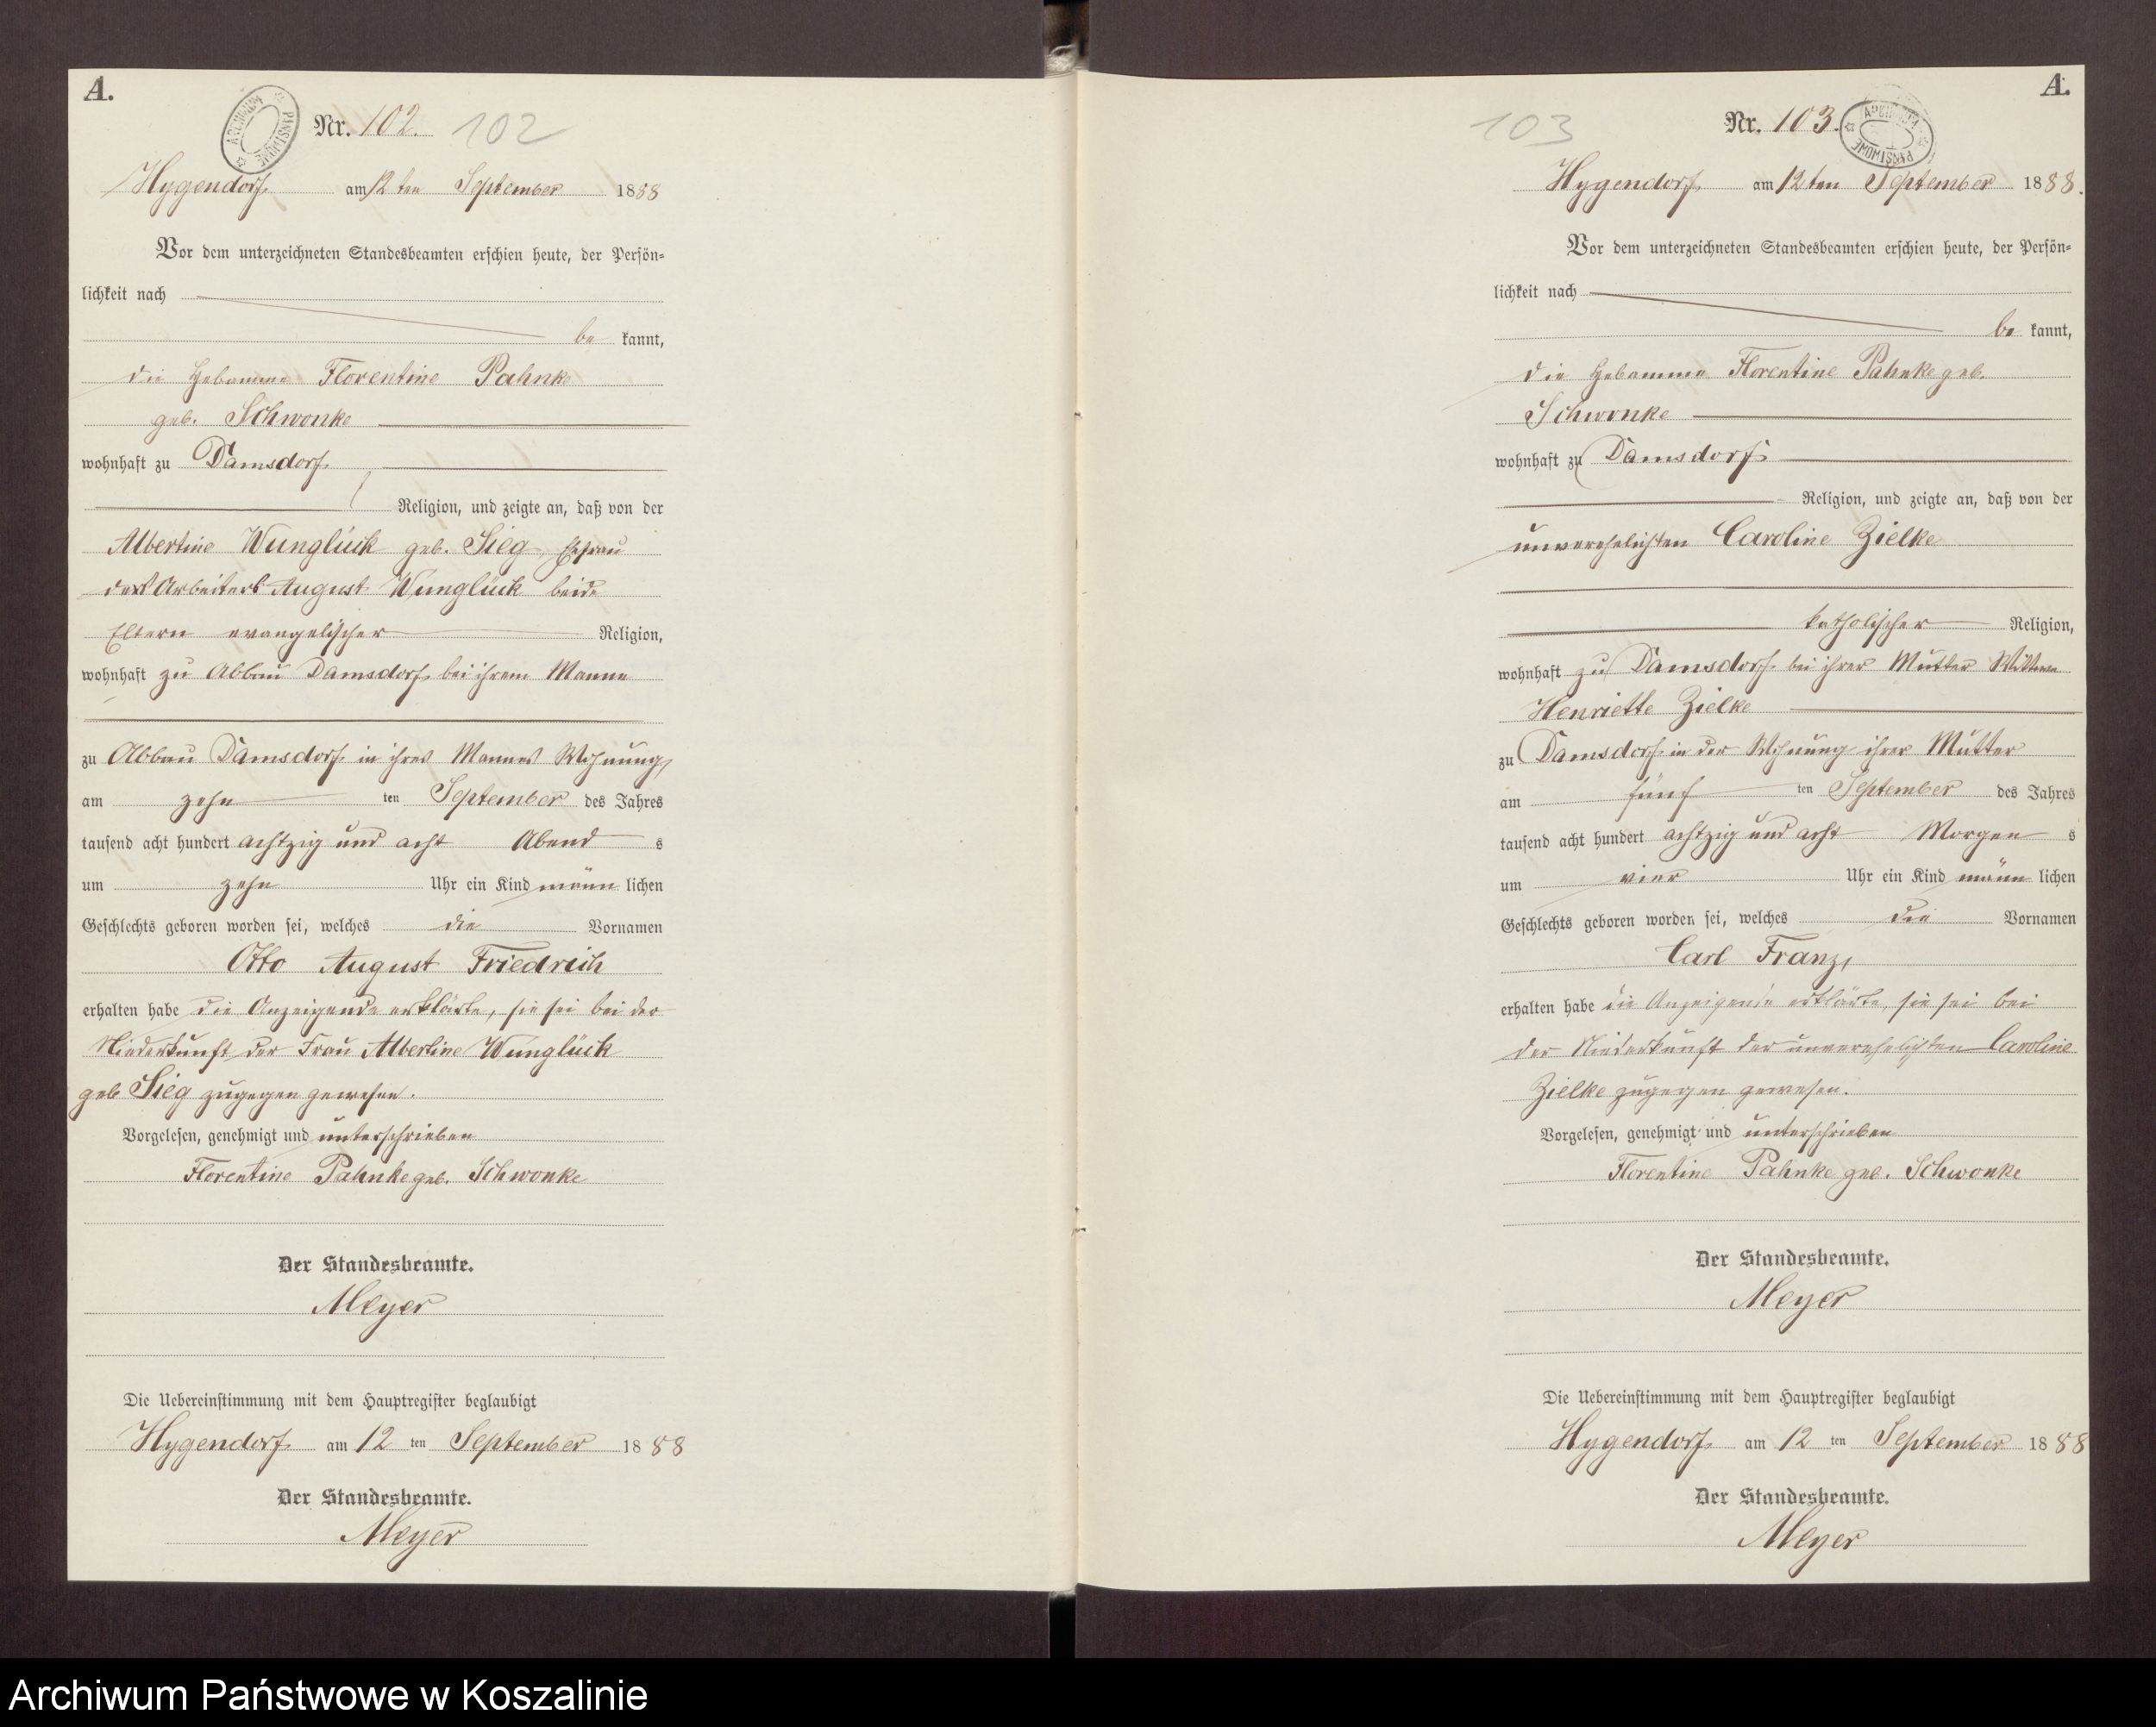 A.
Nr. 102. 102
ARCHIWUM PAŃSTWOWE
Hygendorf am 12 ten September 1888
Vor dem unterzeichneten Standesbeamten erschien heute, der Persön-
lichkeit nach
be kannt,
die Hebamme Florentine Pahnke
geb. Schwonke
wohnhaft zu Damsdorf
Religion, und zeigte an, daß von der
Albertine Wunglück geb. Sieg Ehefrau
des Arbeiters August Wunglück beide
Eltern evangelischer Religion,
wohnhaft zu Abbau Damsdorf bei ihrem Manne
zu Abbau Damsdorf in ihres Mannes Wohnung,
am zehn ten September des Jahres
tausend acht hundert achtzig und acht Abend s
um zehn Uhr ein Kind männ lichen
Geschlechts geboren worden sei, welches die Vornamen
Otto August Friedrich
erhalten habe die Anzeigende erklärte, sie sei bei der
Niederkunft der Frau Albertine Wunglück
geb Sieg zugegen gewesen.
Vorgelesen, genehmigt und unterschrieben
Florentine Pahnke geb. Schwonke
Der Standesbeamte.
Meyer
Die Uebereinstimmung mit dem Hauptregister beglaubigt
Hygendorf am 12 ten September 1888
Der Standesbeamte.
Meyer
A.
103 Nr. 103.
ARCHIWUM PAŃSTWOWE
Hygendorf am 12ten September 1888.
Vor dem unterzeichneten Standesbeamten erschien heute, der Persön-
lichkeit nach
be kannt,
die Hebamme Florentine Pahnke geb.
Schwonke
wohnhaft zu Damsdorf
Religion, und zeigte an, daß von der
unverehelichten Caroline Zielke
katholischer Religion,
wohnhaft zu Damsdorf bei ihrer Mutter Wittwe
Henriette Zielke
zu Damsdorf in der Wohnung ihrer Mutter
am fünf ten September des Jahres
tausend acht hundert achtzig und acht Morgen s
um vier Uhr ein Kind männ lichen
Geschlechts geboren worden sei, welches die Vornamen
Carl Franz,
erhalten habe die Anzeigende erklärte, sie sei bei
der Niederkunft der unverehelichten Caroline
Zielke zugegen gewesen.
Vorgelesen, genehmigt und unterschrieben
Florentine Pahnke geb. Schwonke
Der Standesbeamte.
Meyer
Die Uebereinstimmung mit dem Hauptregister beglaubigt
Hygendorf am 12 ten September 1888
Der Standesbeamte.
Meyer
Archiwum Państwowe w Koszalinie